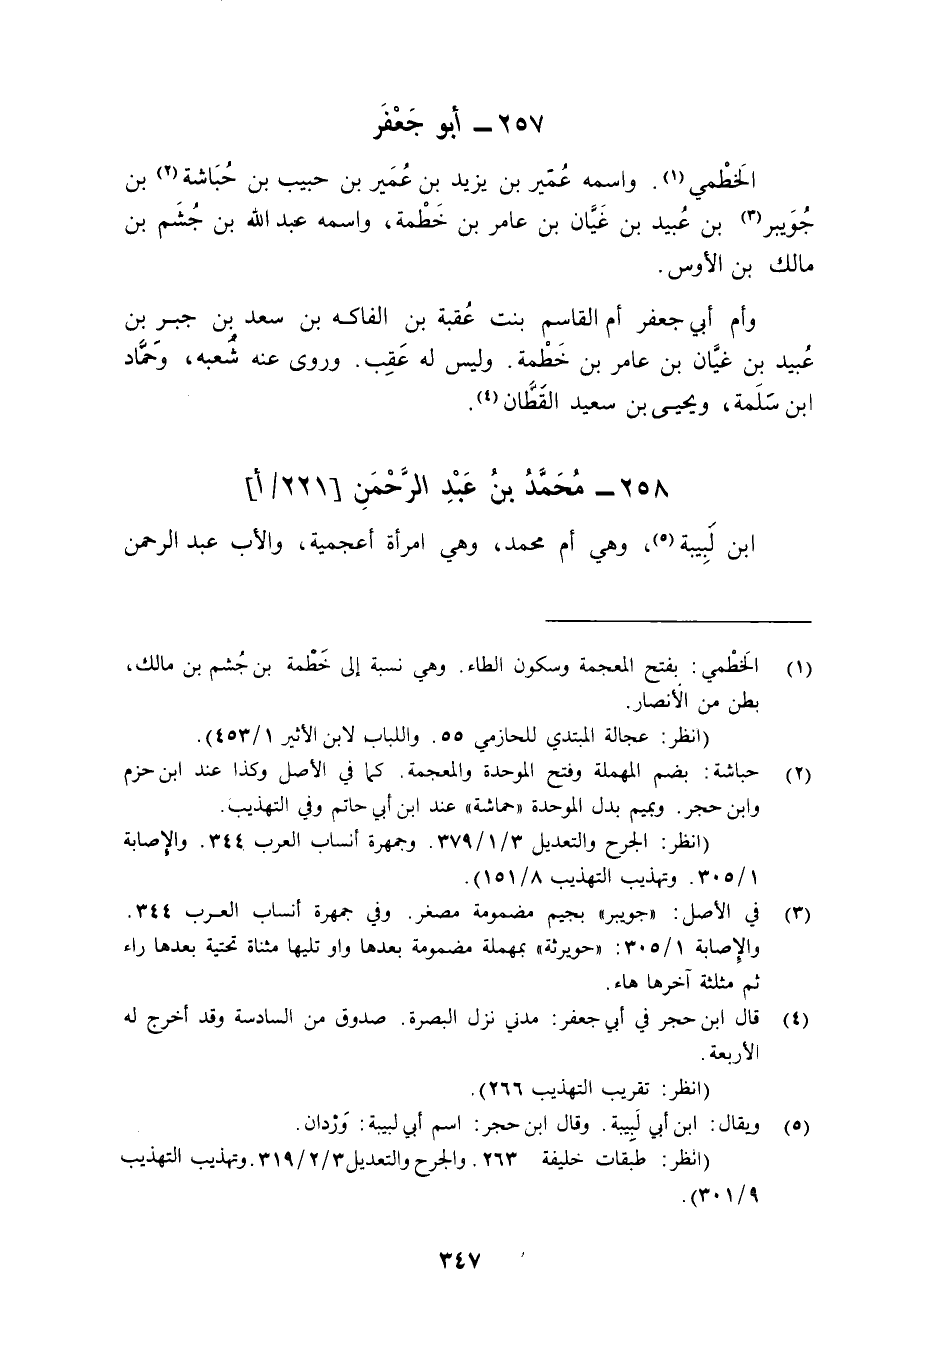 ٢٥٧ ــ أبو جَعْفَر
الخَطْمي(١). واسمه عُمَير بن يزيد بن عُمَير بن حبيب بن حُبَاشة(٢) بن
جُوَيبر(٣) بن عُبيد بن غَيَّان بن عامر بن خَطْمة، واسمه عبد الله بن جُشَم بن
مالك بن الأوس.
وأم أبي جعفر أم القاسم بنت عُقبة بن الفاكه بن سعد بن جبر بن
عُبيد بن غيَّان بن عامر بن خَطْمة. وليس له عَقِب. وروى عنه شُعبه، وحَمَّاد
ابن سَلَمة، ويحيى بن سعيد القَطَّان(٤).
٢٥٨ ــ مُحَمَّدُ بنُ عَبْدِ الرَّحْمَنِ [٢٢١/ أ]
ابن لَبِيبة(٥)، وهي أم محمد، وهي امرأة أعجمية، والأب عبد الرحمن
(١) الخَطْمي: بفتح المعجمة وسكون الطاء. وهي نسبة إلى خَطْمة بن جُشم بن مالك،
بطن من الأنصار.
(انظر: عجالة المبتدي للحازمي ٥٥. واللباب لابن الأثير ٤٥٣/١).
(٢) حباشة: بضم المهملة وفتح الموحدة والمعجمة. كما في الأصل وكذا عند ابن حزم
وابن حجر. وبميم بدل الموحدة «حماشة» عند ابن أبي حاتم وفي التهذيب.
(انظر: الجرح والتعديل ٣٧٩/١/٣. وجمهرة أنساب العرب ٣٤٤. والإصابة
٣٠٥/١. وتهذيب التهذيب ١٥١/٨).
(٣) في الأصل: «جويبر» بجيم مضمومة مصغر. وفي جمهرة أنساب العرب ٣٤٤.
والإصابة ٣٠٥/١: «حويرثة» بمهملة مضمومة بعدها واو تليها مثناة تحتية بعدها راء
ثم مثلثة آخرها هاء.
(٤) قال ابن حجر في أبي جعفر: مدني نزل البصرة. صدوق من السادسة وقد أخرج له
الأربعة.
(انظر: تقريب التهذيب ٢٦٦).
(٥) ويقال: ابن أبي لَبِيبة. وقال ابن حجر: اسم أبي لبيبة: وَرْدان.
(انظر: طبقات خليفة ٢٦٣. والجرح والتعديل ٣١٩/٢/٣. وتهذيب التهذيب
٣٠١/٩).
٣٤٧